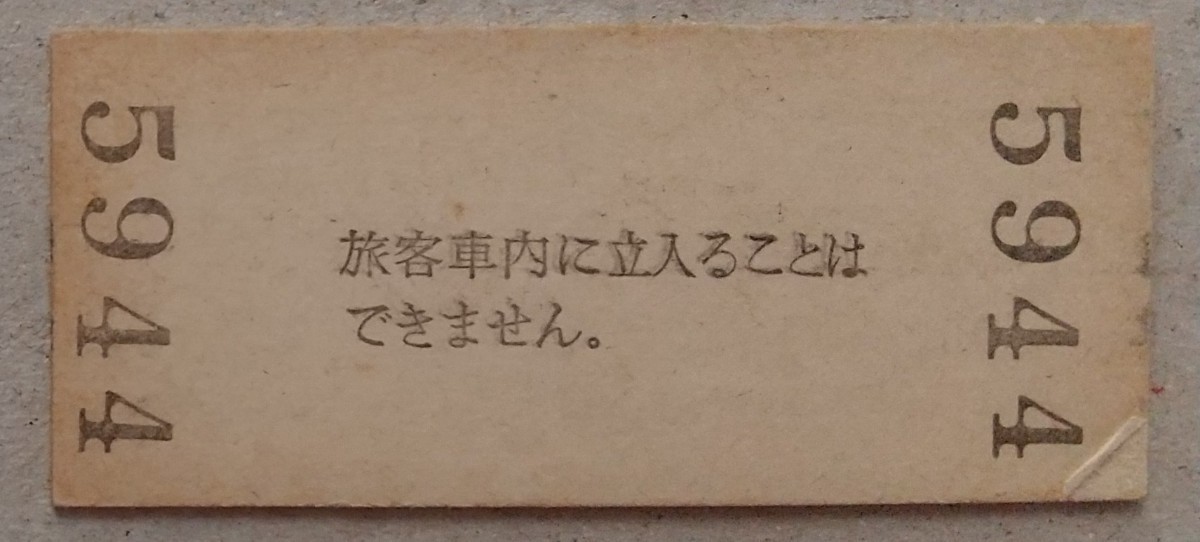 5944
旅客車内に立入ることは
できません。
5944